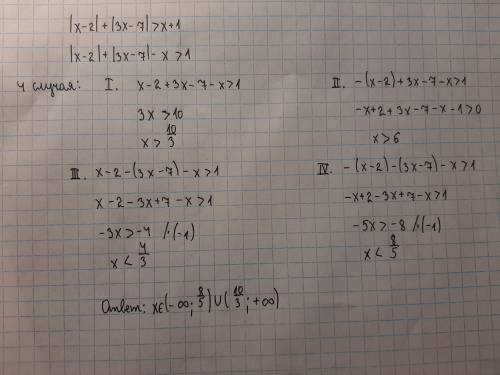 |x-2|+|3x-7|>x+1
|x-2|+|3x-7|-x>1
4 случая: I. x-2+3x-7-x>1
3x>10
x>10/3
II. -(x-2)+3x-7-x>1
-x+2+3x-7-x-1>0
x>6
III. x-2-(3x-7)-x>1
x-2-3x+7-x>1
-3x>-4 /·(-1)
x<4/3
IV. -(x-2)-(3x-7)-x>1
-x+2-3x+7-x>1
-5x>-8 /·(-1)
x<8/5
Ответ: x∈(-∞; 8/5)∪(10/3; +∞)